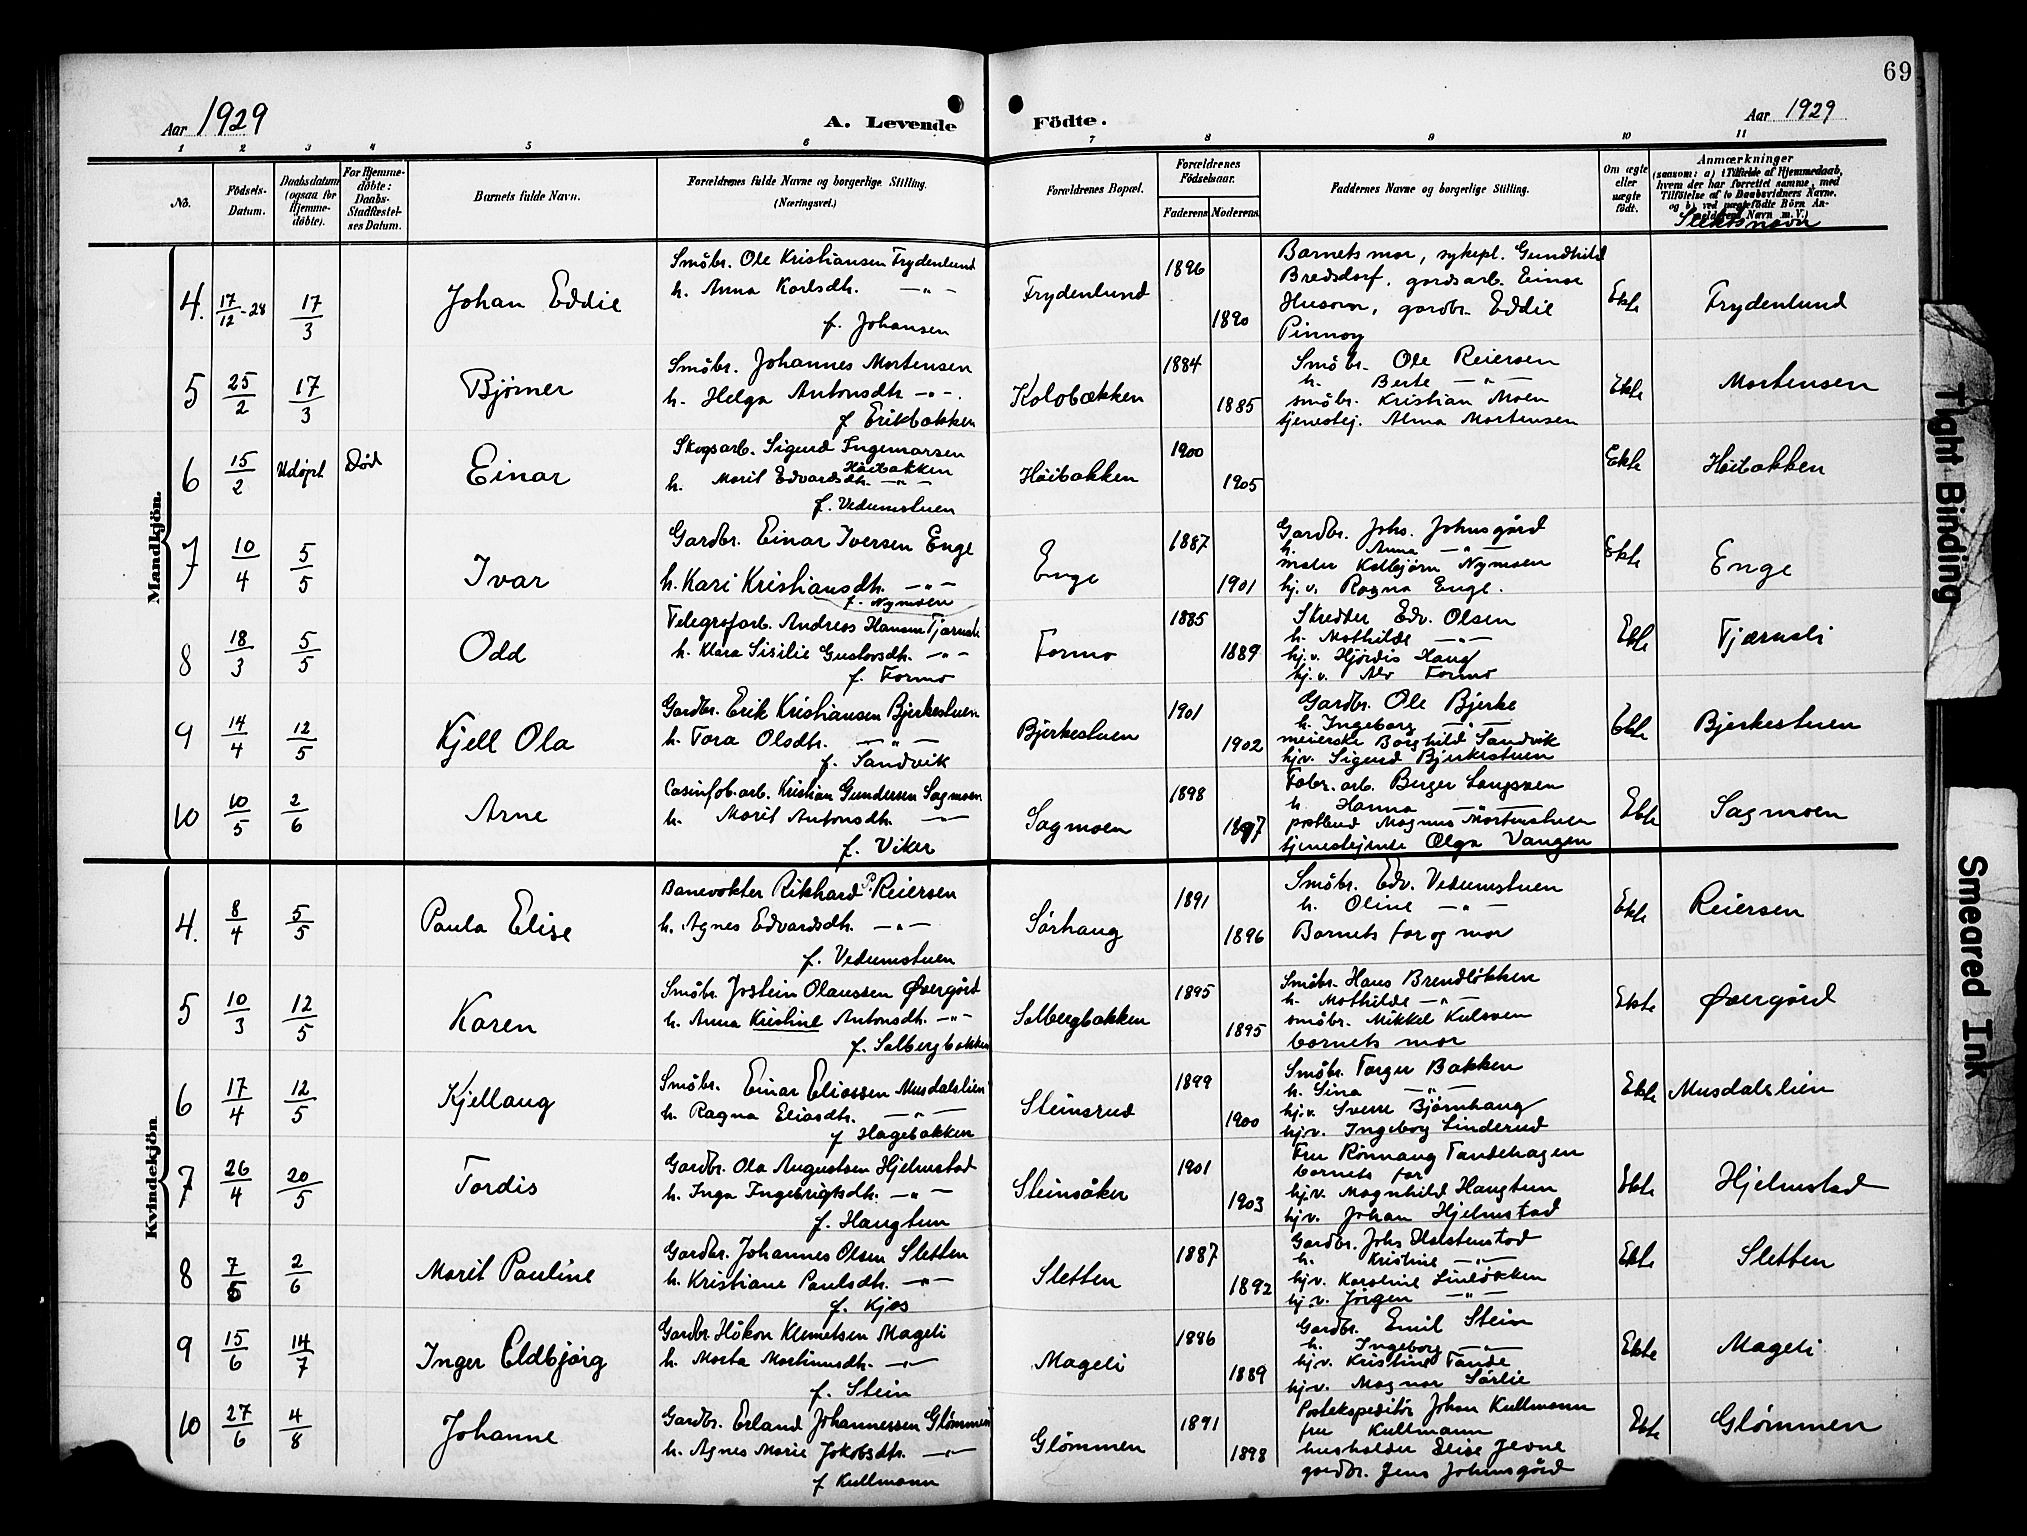 69
Aar 1929 A. Levende Födte. Aar 1929
1 2 3 4 5 6 7 8 9 10 11
No.
Födsels-
Datum.
Daabsdatum
(ogsaa for
Hjemme-
döbte).
For Hjemme-
döbte:
Daabs-
Stadfæstel-
ses Datum.
Barnets fulde Navn.
Forældrenes fulde Navne og borgerlige Stilling.
(Næringsvei.)
Forældrenes Bopæl.
Forældrenes
Födselsaar.
Faderens Moderens
Faddernes Navne og borgerlige Stilling.
Om ægte
eller
uægte
födt.
Anmærkninger
(saasom: a) i Tilfælde af Hjemmedaab,
hvem der har forrettet samme, med
Tilföielse af to Daabsvidners Navne.
og b) ved uægtefödte Börn An-
Navn m. V.)
Slektsnavn
Mandkjön.
4. 17/12-28 17/3 Johan Eddie
Småbr. Ole Kristiansen Frydenlund
h. Anna Karlsdh. — " —
f. Johansen
Frydenlund 1896 1890
Barnets mor, sykepl. Gundhild
Bredsdorf, gardsarb. Einar
Husom, gardbr. Eddie
Pinnoy
Ekte Frydenlund
5 25/2 17/3 Bjørner
Småbr. Johannes Mortensen
h. Helga Antonsdh. — " —
f. Erikbakken
Kolobækken 1884 1885
Småbr. Ole Reiersen
h. Berte — " —
småbr. Kristian Moen
tjenestej. Alma Mortensen
Ekte Mortensen
6 15/2 Udøpt Død Einar
Skogsarb. Sigurd Ingemarsen
Høibakken
h. Marit Edvardsdh. — " —
f. Vedumstuen
Høibakken 1900 1905
Ekte Høibakken
7 10/4 5/5 Ivar
Gardbr. Einar Iversen Enge
h. Kari Kristiansdh. — " —
f. Nymoen
Enge 1887 1901
Gardbr. Johs. Johnsgård
h. Anna — " —
maler Kolbjørn Nymoen
hj.v. Ragna Enge.
Ekte Enge
8 18/3 5/5 Odd
Telegrafarb. Andreas Hansen
h. Klara Sisilie Gustavsdh. — " —
f. Formo
Formo 1885 1889
Skredder Edv. Olsen
h. Mathilde — " —
hj.v. Hjördis Haug
hj.v. Alv Formo
Ekte Tjærnsli
9 14/4 12/5 Kjell Ola
Gardbr. Erik Kristiansen Bjerkestuen
h. Tora Olsdh. — " —
f. Sandvik
Bjerkestuen 1901 1902
Gardbr. Ole Bjerke
h. Ingeborg — " —
meierske Borghild Sandvik
hj.v. Sigurd Bjerkestuen
Ekte Bjerkestuen
10 10/5 2/6 Arne
Casinfab.arb. Kristian Gundersen Sagmoen
h. Marit Antonsdh. — " —
f. Viker
Sagmoen 1898 1897
Fabr. arb. Birger Langsveen
h. Hanna — " —
postbud Magnus Mortenstuen
tjenestejente Olga Vangen
Ekte Sagmoen
Kvindekjön
4. 8/4 5/5 Paula Elise
Banevokter Rikhard P. Reiersen
h. Agnes Edvardsdh. — " —
f. Vedumstuen
Sørhaug 1891 1896
Småbr. Edv. Vedumstuen
h. Oline — " —
Barnets far og mor
Ekte Reiersen
5 10/3 12/5 Karen
Småbr. Jostein Olaussen Øvergård
h. Anna Kristine Antonsdh. — " —
f. Solbergbakken
Solbergbakken 1895 1895
Småbr. Hans Brendløkken
h. Mathilde — " —
småbr. Mikkel Kulsveen
barnets mor
Ekte Øvergård
6 17/4 12/5 Kjellaug
Småbr. Einar Eliassen Musdalslien
h. Ragna Eliasdh. — " —
f. Hagebakken
Steinsrud 1899 1900
Småbr. Torger Bakken
h. Sina — " —
hj.v. Sverre Bjørnhaug
hj.v. Ingeborg Linderud
Ekte Musdalslien
7 26/4 20/5 Tordis
Gardbr. Ola Augustsen Hjelmstad
h. Inga Ingebrigtsdh. — " —
f. Haugtun
Steinsåker 1901 1903
Fru Rønnaug Tandehagen
barnets far
hj.v. Magnhild Haugtun
hj.v. Johan Hjelmstad
Ekte Hjelmstad
8 7/5 2/6 Marit Pauline
Gardbr. Johannes Olsen Sletten
h. Kristiane Paulsdh. — " —
f. Kjos
Sletten 1887 1892
Gardbr. Johs Halstenstad
h. Kristine — " —
hj.v. Karoline Linløkken
hj.v. Jørgen — " —
Ekte Sletten
9 15/6 14/7 Inger Eldbjørg
Gardbr. Håkon Klemetsen Mageli
h. Marta Martinusdh. — " —
f. Stein
Mageli 1886 1889
Gardbr. Emil Stein
h. Ingeborg — " —
hj.v. Kristine Tande
hj.v. Magnar Sørlie
Ekte Mageli
10 27/6 4/8 Johanne
Gardbr. Erland Johannessen Glømmen
h. Agnes Marie Jakobsdh. — " —
f Kullmann
Glømmen 1891 1898
Postekspeditør Johan Kullmann
fru Kullmann
husholder Elise Jevne
gardbr. Jens Johnsgård
Ekte Glømmen
Tight Binding
Smeared Ink